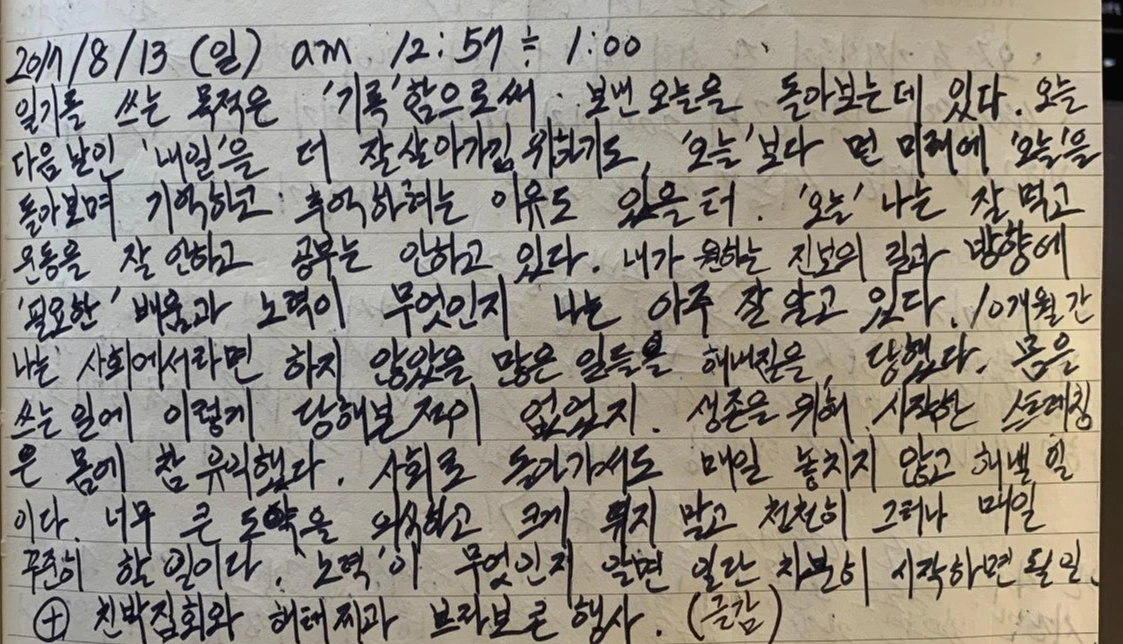 2017/8/13 (일) am 12:57 ÷ 1:00
일기를 쓰는 목적은 '기록'함으로써 보낸 오늘을 돌아보는데 있다. 오늘
다음날인 '내일'을 더 잘 살아가김 위하기도, '오늘'보다 먼 미래에 '오늘'을
돌아보며 기억하고 추억하려는 이유도 있을 터. '오늘' 나는 잘 먹고
운동을 잘 안하고 공부는 안하고 있다. 내가 원하는 진보의 길과 방향에
'필요한' 배움과 노력이 무엇인지 나는 아주 잘 알고 있다. 10개월 간
나는 사회에서라면 하지 않았을 많은 일들을 해내짐을, 당했다. 몸을
쓰는 일에 이렇게 당해본 적이 없었지. 생존을 위해 시작한 스트레칭
은 몸에 참 유익했다. 사회로 돌아가서도 매일 놓치지 않고 해낼 일
이다. 너무 큰 도약을 의식하고 크게 뛰지 말고 천천히 그러나 매일
꾸준히 할 일이다. 노력'이 무엇인지 알면 일단 차분히 시작하면 될 일.
⊕ 친박집회와 해태제과 브라보콘 행사. (급감)